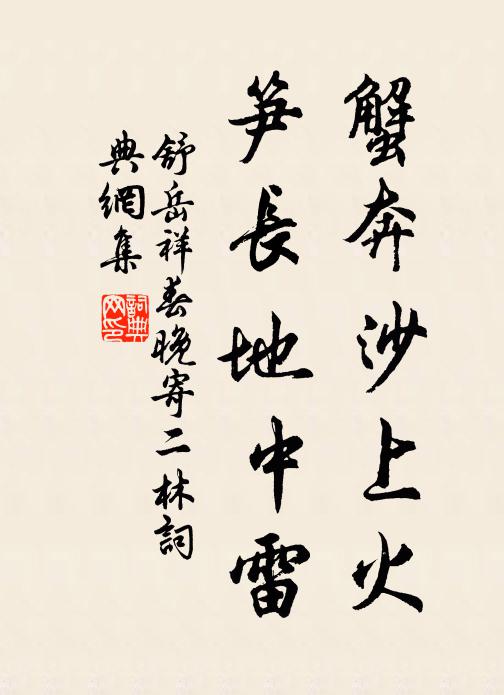 蟹奔沙上火
笋長地中雷
舒岳祥春晚寄二林詞
典網集
詞典
网印